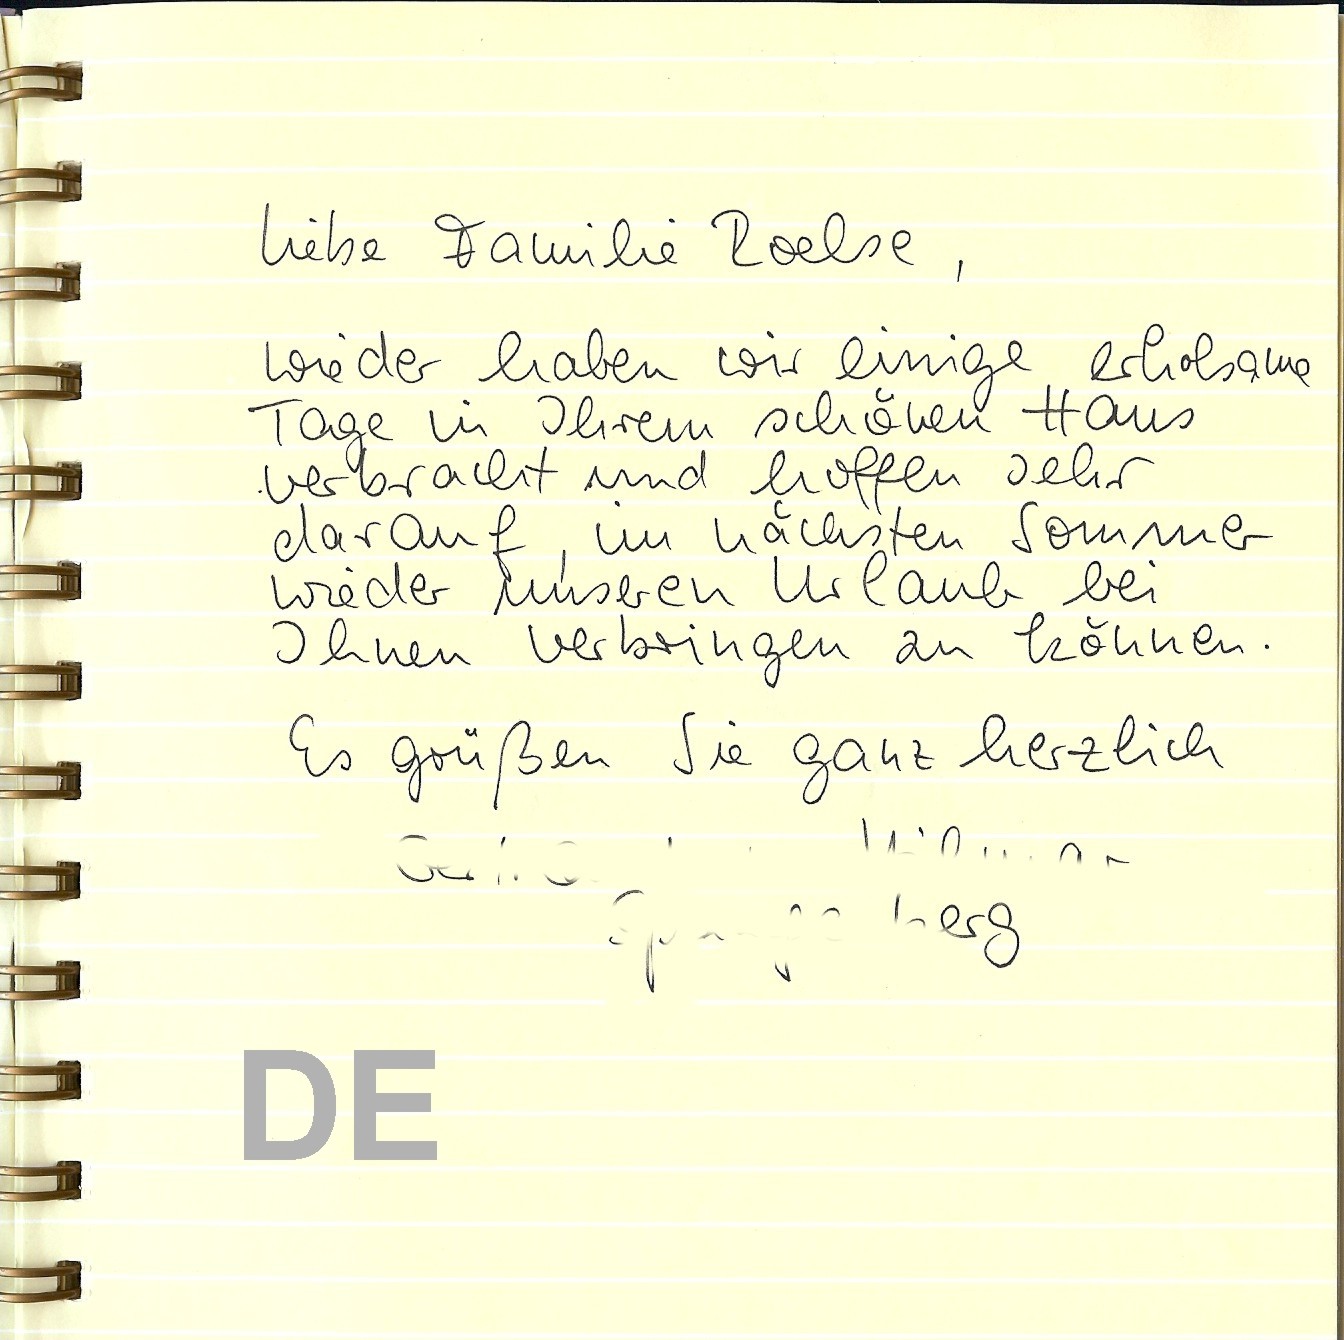 Liebe Familie Roelse,
wieder haben wir einige erholsame
Tage in Ihrem schönen Haus
verbracht und hoffen sehr
darauf, im nächsten Sommer
wieder unseren Urlaub bei
Ihnen verbringen zu können.
Es grüßen Sie ganz herzlich
DE